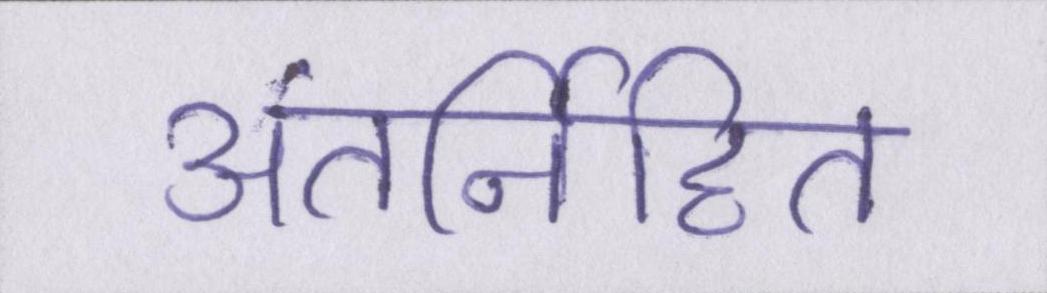 अंतर्निहित